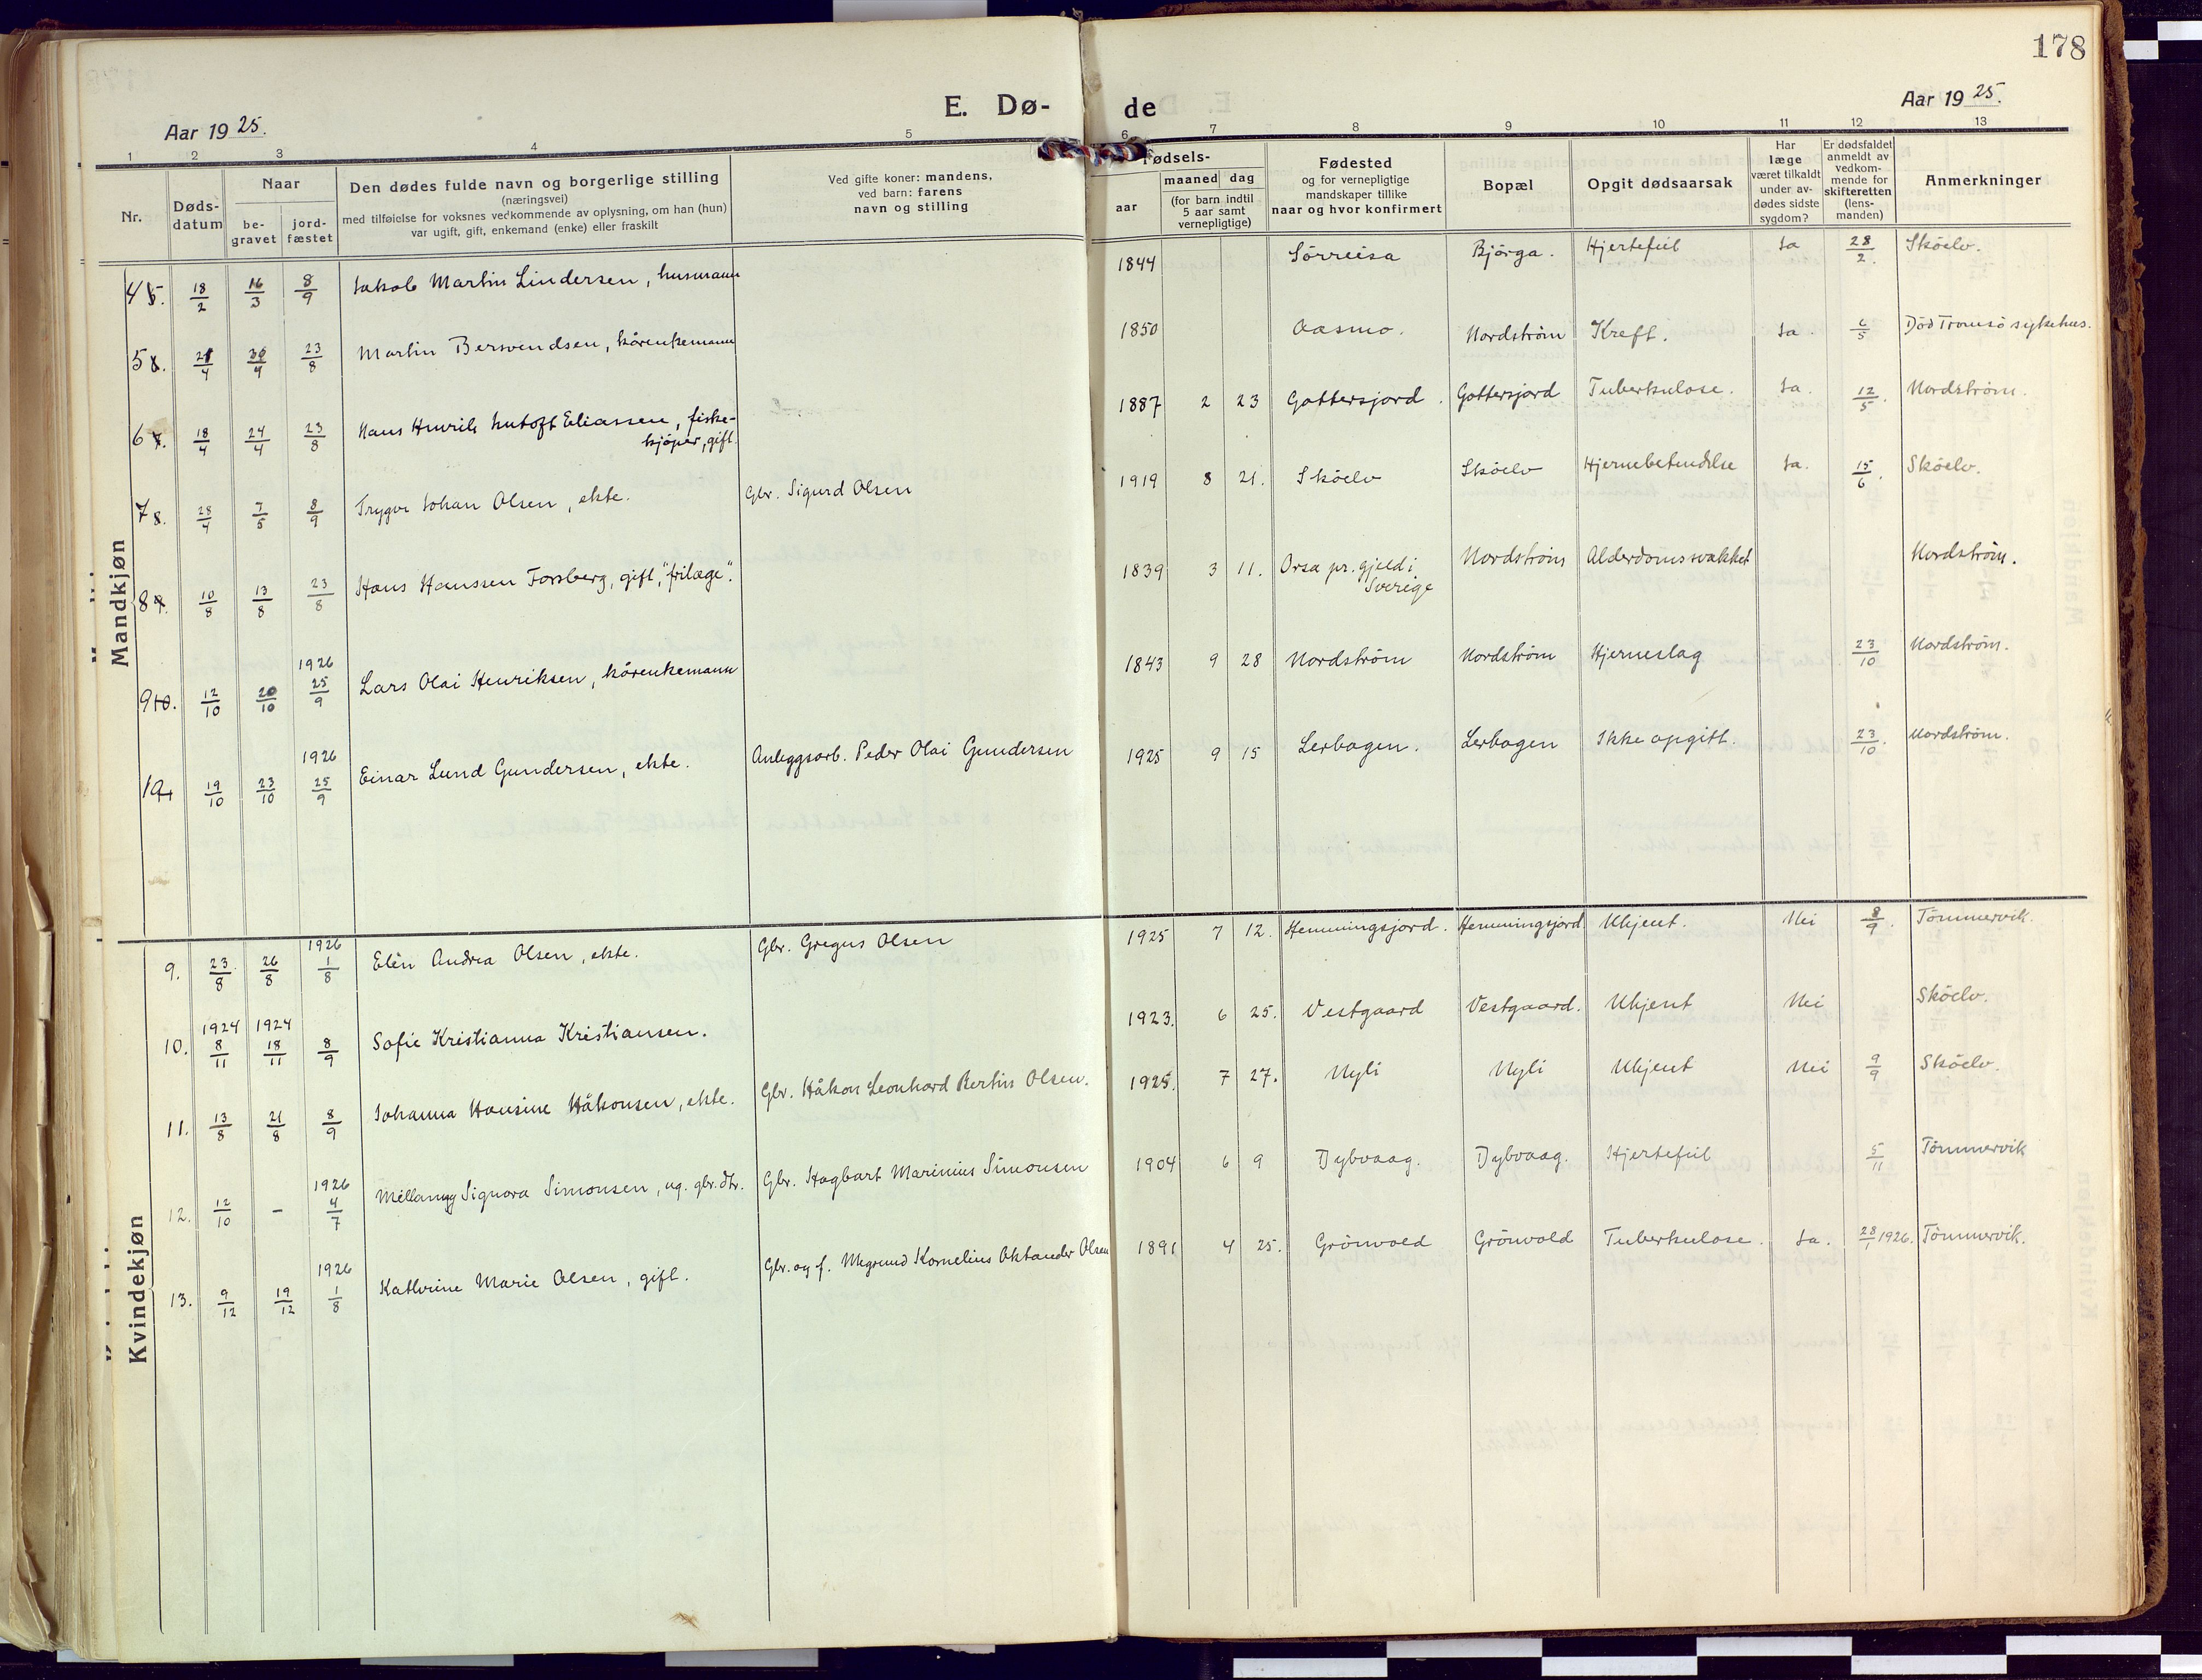 178
E. Dø- de
Aar 1925.
Aar 1925.
1 2 3 4 5 6 7 8 9 10 11 12 13
Nr.
Døds-
datum
Naar
be-
gravet
jord-
fæstet
Den dødes fulde navn og borgerlige stilling
(næringsvei)
med tilføielse for voksnes vedkommende av oplysning, om han (hun)
var ugift, gift, enkemand (enke) eller fraskilt
Ved gifte koner: mandens,
ved barn: farens
navn og stilling
Fødsels-
aar
maaned dag
(for barn indtil
5 aar samt
vernepligtige)
Fødested
og for vernepligtige
mandskaper tillike
naar og hvor konfirmert
Bopæl
Opgit dødsaarsak
Har
læge
været tilkaldt
under av-
dødes sidste
sygdom?
Er dødsfaldet
anmeldt av
vedkom-
mende for
skifteretten
(lens-
manden)
Anmerkninger
Mandkjøn
4. 18/2 16/3 8/9 Jakob Martin Lindersen, husmann 1844 Sørreisa Bjørga. Hjertefeil Ja 28/2. Skøelv.
5. 21/4 30/4 23/8 Martin Bersvendsen, kårenkemann 1850 Aasmo. Nordstrøm Kreft. Ja. 6/5 Død Tromsø sykehus.
6. 18/4 24/4 23/8 Hans Henrik Hutoft Eliassen, fiske-
kjøper, gift. 1887 2 23 Gottersjord. Gottersjord Tuberkulose. Ja. 12/5. Nordstrøm.
7. 28/4 7/5 8/9 Trygve Johan Olsen, ekte. Gbr. Sigurd Olsen 1919 8 21. Skøelv Skøelv Hjernebetendelse Ja. 15/6. Skøelv.
8. 10/8 13/8 23/8 Hans Hanssen Forsberg, gift, "frilæge". 1839 3 11. Orsa pr. gjeld i
Sverige Nordstrøm Alderdomssvakhet Nordstrøm.
9. 12/10 20/10 1926 25/9 Lars Olai Henriksen, kårenkemann 1843 9 28 Nordstrøm Nordstrøm Hjerneslag 23/10 Nordstrøm.
10. 19/10 23/10 1926 25/9 Einar Lund Gundersen, ekte. Anleggsarb. Peder Olai Gundersen 1925 9 15 Lerbogen. Lerbogen Ikke opgitt. 23/10. Nordstrøm.
Kvindekjøn
9. 23/8 26/8 1926 1/8 Elèn Andrea Olsen, ekte. Gbr. Gregus Olsen 1925 7 12. Hemmingsjord. Hemmingsjord Ukjent. Nei 8/9 Tømmervik.
10. 1924 8/11 1924 18/11 8/9 Sofie Kristianna Kristiansen. 1923. 6 25. Vestgaard Vestgaard. Ukjent Nei Skøelv.
11. 13/8 21/8 8/9 Johanna Hansine Håkonsen, ekte. Gbr. Håkon Leonhard Bertin Olsen. 1925. 7 27. Nyli Nyli Ukjent Nei 9/9 Skøelv.
12. 12/10 - 1926 4/7 Signora Simonsen, ug. gbr.dtr. Gbr. Hagbart Marinius Simonsen 1904 6 9 Dybvaag. Dybvaag. Hjertefeil 5/11 Tømmervik
13. 9/12 19/12 1926 1/8 Kathrine Marie Olsen, gift. Gbr. og f. Kornelius Oktander Olsen 1891 4 25. Grönvold Grönvold Tuberkulose. Ja. 28/1 1926. Tømmervik.